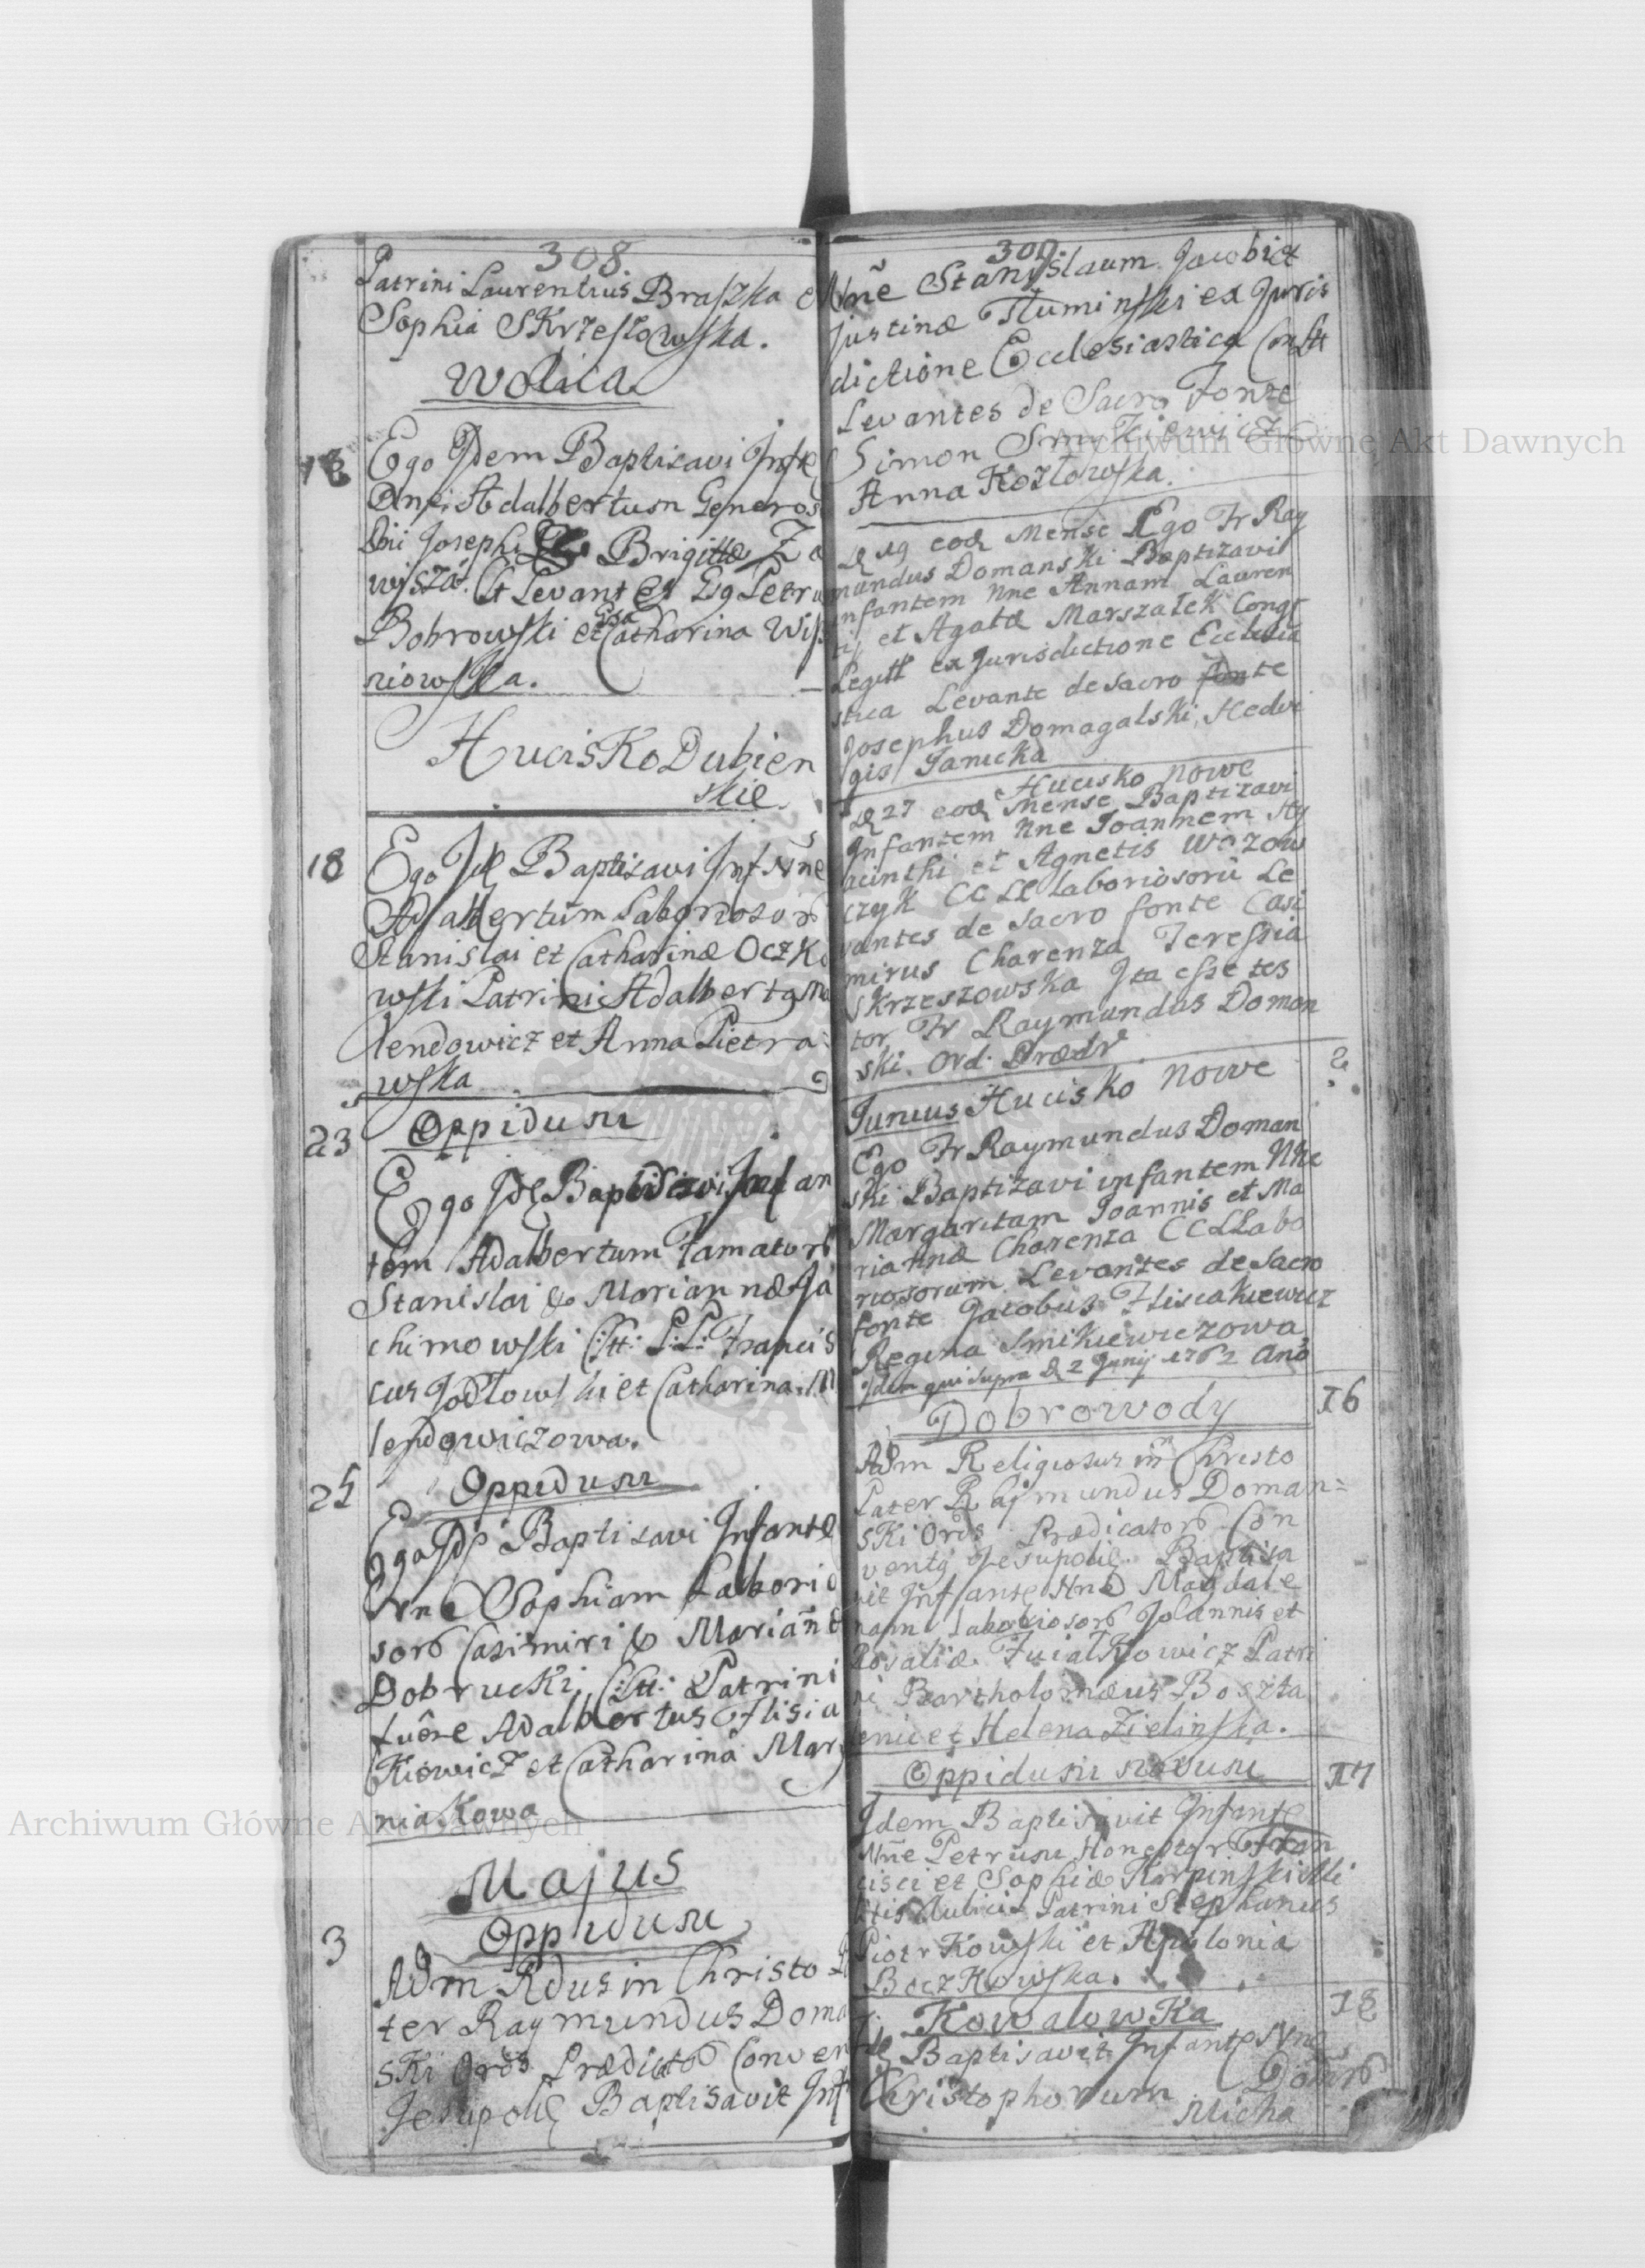 308
Patrini Laurentius Braszka et
Sophia Skrzeszowska.
Wolica
18
Ego Idem Baptisavi Infte
Adalbertum Generos
Dni Josephi Brigittæ Za
wisza. Ct Levantes Gs Petru
Bobrowski et Gsa Catharina Wiś
niowska.
Hucisko Dubien
skie.
18
Ego Id Baptisavi Inf Nne
Adalbertum Laborioso
Stanislai et Catharinæ Oczko
wski Patrini Adalbertg Ma
lendowicz et Anna Pietra
wska
23
Oppidum
Ego Ide Baptisavi Infan
tem Adalbertum Famator
Stanislai & Mariannæ Ja
chimowski Ctt: P:P: Francis
cus Jodłowski et Catharina M
lendowiczowa.
25
Oppidum
Ego Ide Baptisavi Infante
Nne Sophiam Laborio
sor Casimiri & Mariañæ
Dobrucki, Ctt: Patrini
fuere Adalbertus Flisia
Kiewicz et Catharina Mar
niakowa
Majus
Oppidum
3
Adm Rdus in Christo Pa
ter Raymundus Doma
ski Ords Prædicto Conven
Jesupolie Baptisavit Inf
309
Nñe Stanislaum Jacobi et
Justinæ Tłumiński ex Juris
dictione Ecclesiastica Ctt
Levantes de Sacro Fonte
Simon Smikiewicz
Anna Kozłowska.
D 19 eod Mense Ego Fr Ray
mundus Domanski Baptizavi
infantem Nne Annam Lauren
tij et Agatæ Marszałek Congr
Legitt ex Jurisdictione Ecclesia
stica Levante de sacro fonte
Josephus Domagalski, Hedvi
gis Janicka
Hucisko Nowe
D 27 eod Mense Baptizavi
Infantem Nne Joannem Hy
acinthi et Agnetis Wozow
czyk CC LL Laboriosorũ Le
vantes de sacro fonte Casi
mirus Charenza Teressia
Skrzeszowska Ita esse tes
tor Fr Raymundus Doman
ski. Ord Prædr
2
Junius Hucisko Nowe
Ego Fr Raymundus Doman
ski Baptizavi infantem Nne
Margaritam Joannis et Ma
riannæ Charenza CC LL Labo
riosorum Levantes de sacro
fonte Jacobus Flisiakiewicz
Regina Smikiewiczowa,
Idem qui supra D 2 Junij 1762 Ano
16
Dobrowody
Adm Religiosus in Christo
Pater Rajmundus Doman=
ski Ords Prædicator Con
ventg Jesupolie Baptisa
vit Infante Nne Magdale
nam laboriosor Joannis et
Rosaliæ Fuiałkowicz Patri
ni Bartholomæus Boszta
enic et Helena Zielinska.
17
Oppidum novum
Idem Baptisavit Infante
Nñe Petrum Honestor Fran
cisci et Sophiæ Karpinski Mi
litis Aulici Patrini Stephanus
Piotrkowski et Apolonia
Boczkowska.
18
Kowalowka
Ide Baptisavit Infante Nne
Christophorum Dom̃or
Micha